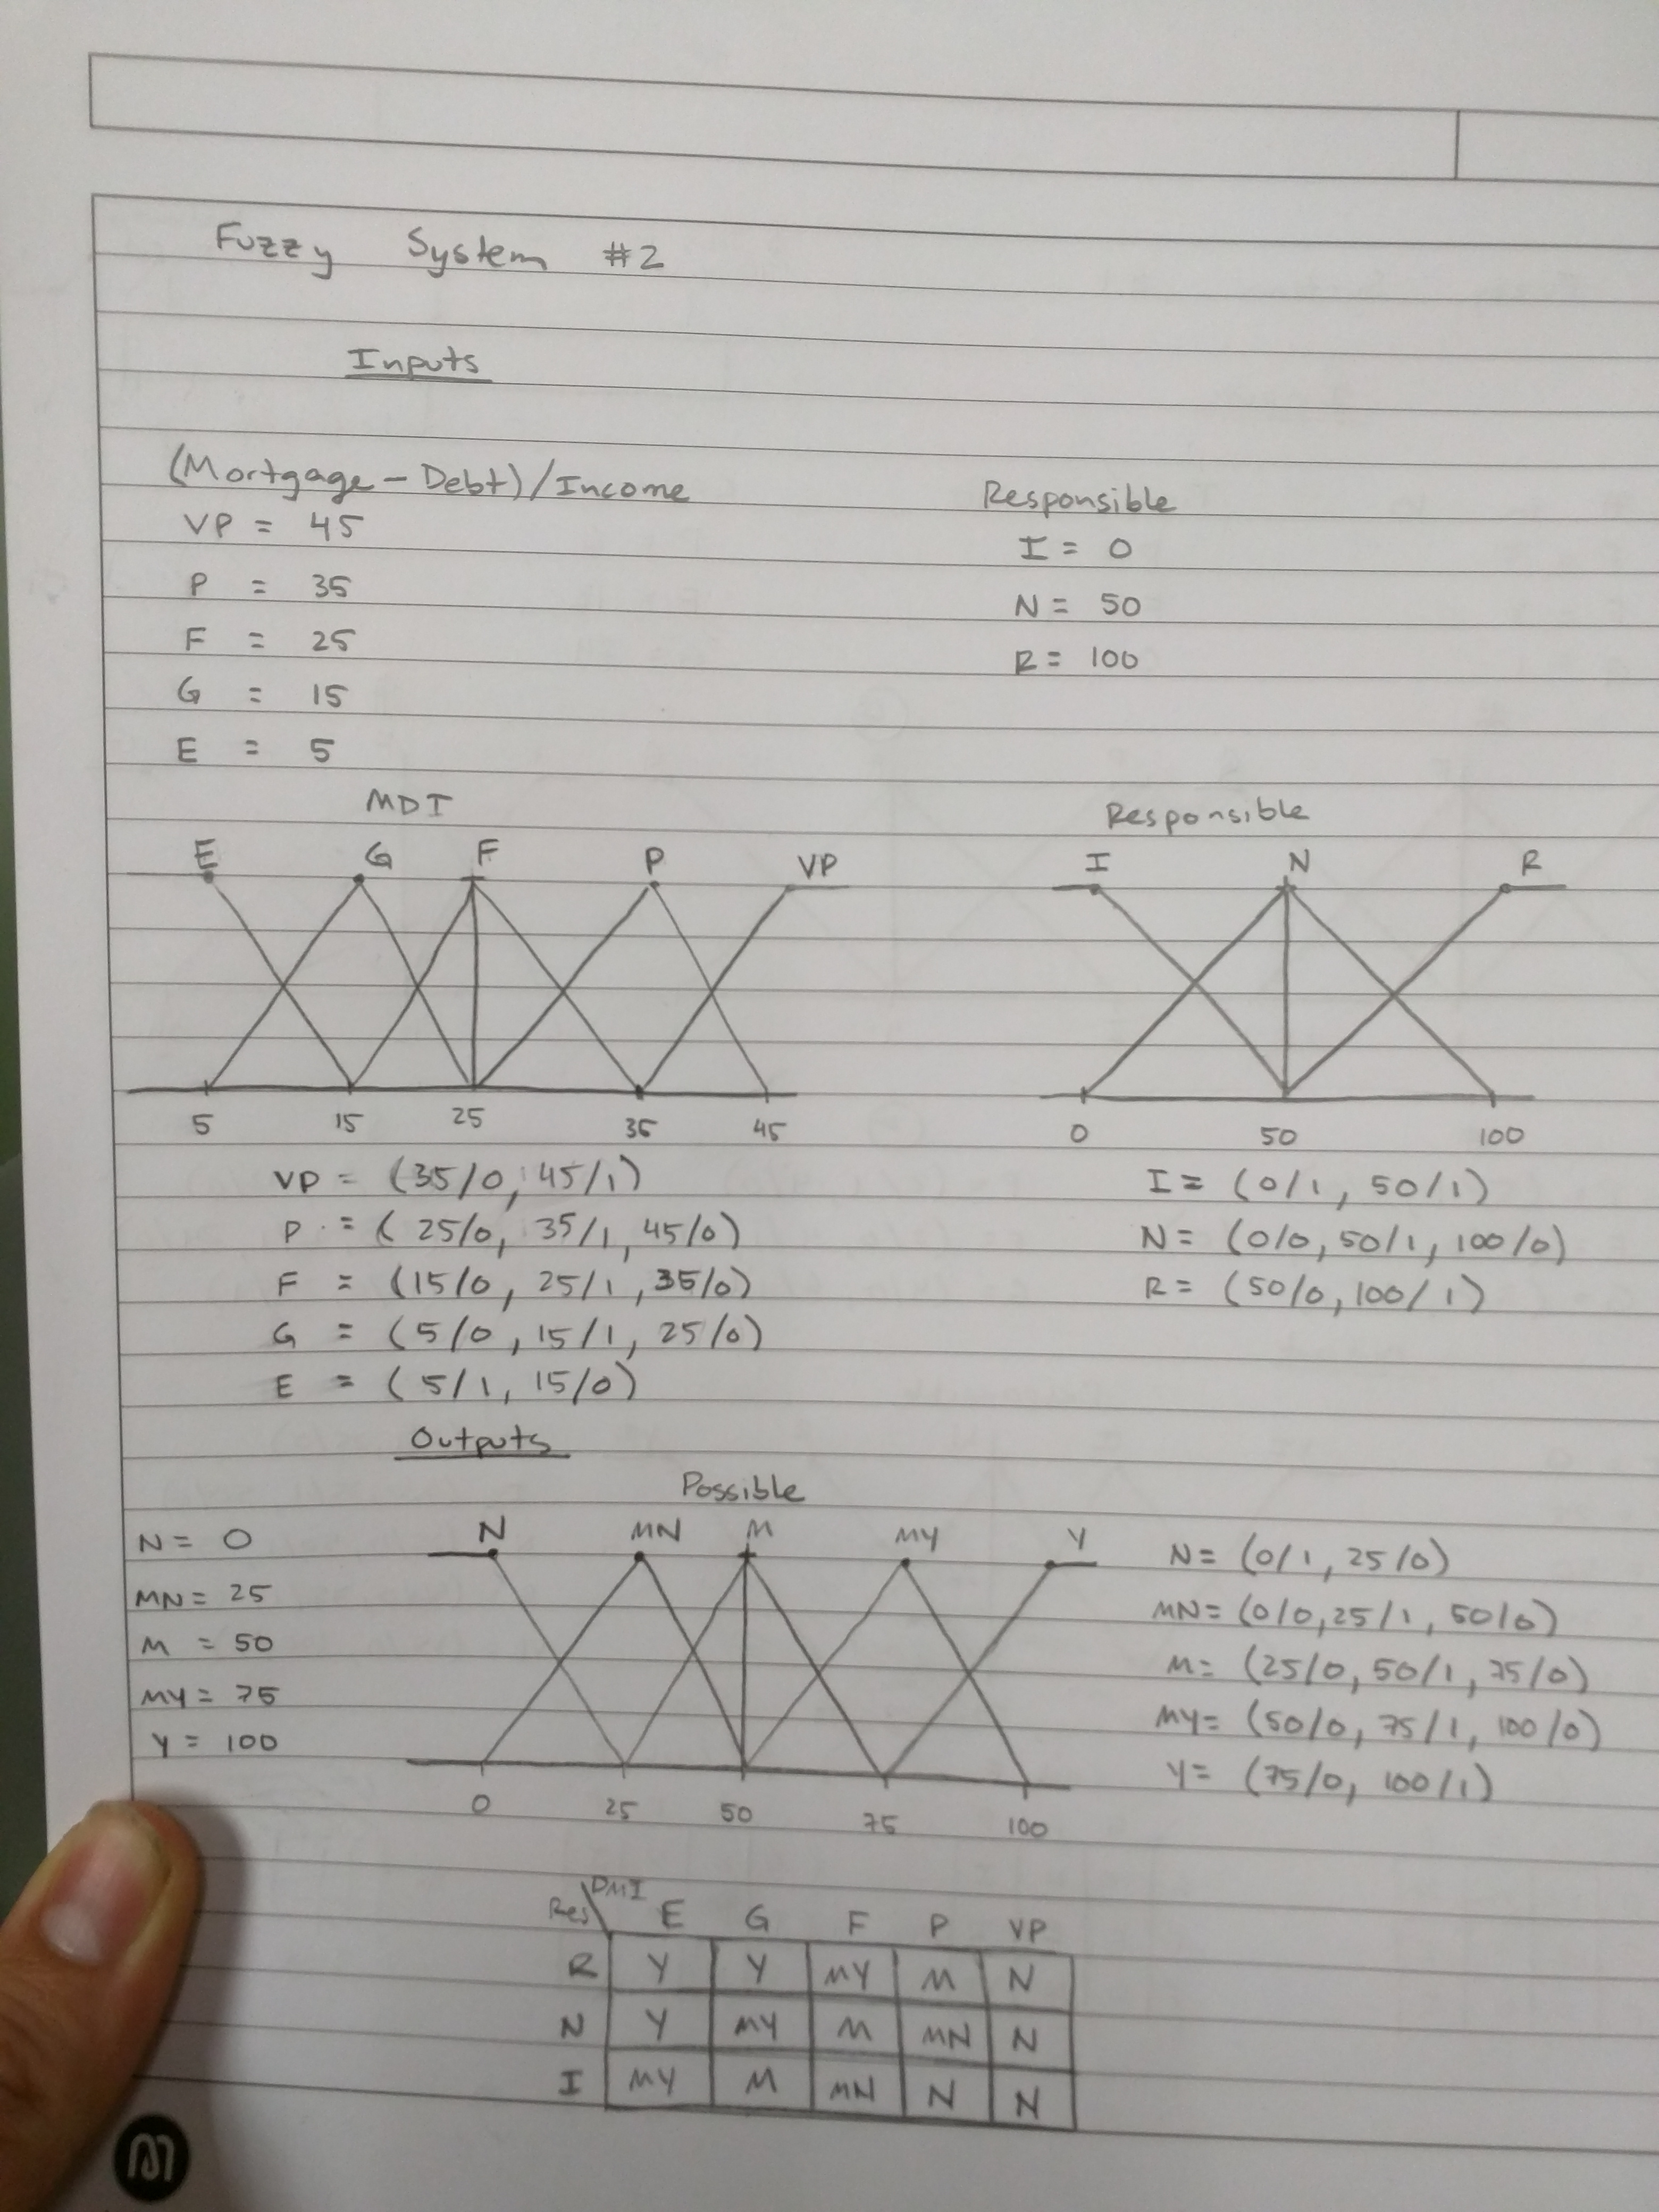 Fuzzy System #2
Inputs
(Mortgage - Debt)/Income
VP = 45
P = 35
F = 25
G = 15
E = 5
Responsible
I = 0
N = 50
R = 100
MDI
E G F P VP
5 15 25 35 45
Responsible
I N R
0 50 100
VP = (35/0, 45/1)
P = (25/0, 35/1, 45/0)
F = (15/0, 25/1, 35/0)
G = (5/0, 15/1, 25/0)
E = (5/1, 15/0)
I = (0/1, 50/1)
N = (0/0, 50/1, 100/0)
R = (50/0, 100/1)
Outputs
Possible
N = 0
MN = 25
M = 50
MY = 75
Y = 100
N MN M MY Y
0 25 50 75 100
N = (0/1, 25/0)
MN = (0/0, 25/1, 50/0)
M = (25/0, 50/1, 75/0)
MY = (50/0, 75/1, 100/0)
Y = (75/0, 100/1)
Res\DMI E G F P VP
R Y Y MY M N
N Y MY M MN N
I MY M MN N N